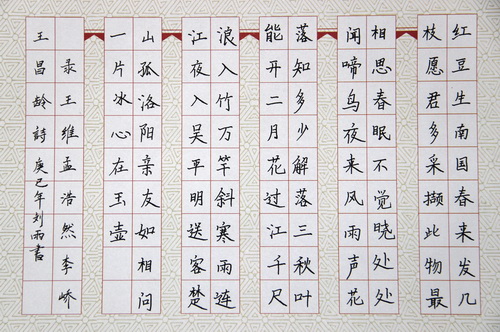 红豆生南国春来发几
枝愿君多采撷此物最
相思春眠不觉晓处处
闻啼鸟夜来风雨声花
落知多少解落三秋叶
能开二月花过江千尺
浪入竹万竿斜寒雨連
江夜入吴平明送客楚
山孤洛阳亲友如相问
一片冰心在玉壶
录王维孟浩然李峤
王昌龄詩庚己年刘雨書